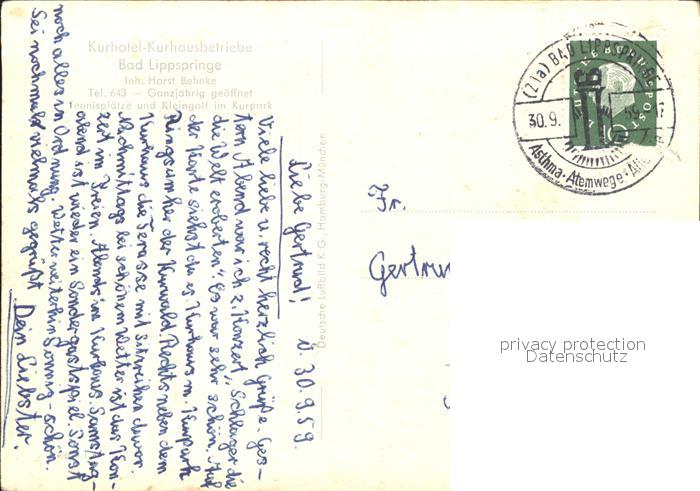 Kurhotel-Kurhausbetriebe
Bad Lippspringe
Inh. Horst Behnke
Tel. 643 — Ganzjährig geöffnet
Tennisplätze und Kleingolf im Kurpark
Ü. 30.9.59.
Liebe Gertrud!
Viele liebe u. recht herzlich Grüße. Ges-
tern Abend war ich z. Konzert "Schlager die
die Welt eroberten". Es war sehr schön. Auf
der Karte siehst du es. Kurhaus m. Kurpark
Ringsumher der Kurwald Rechts neben dem
Kurhaus die Terasse mit Schreiben davor.
Nachmittags bei schönem Wetter ist das Kon-
zert im Freien. Abends im Kurhaus. Samstag-
abend ist wieder ein Sondergastspiel. Sonst
noch alles in Ordnung. Wetter weiterhin Sonnig-schön.
Sei nochmals vielmals gegrüßt
Dein Liebster.
Deutsche Luftbild K.G., Hamburg-München
(21a) BAD LIPPSPRINGE
30.9. 59
Asthma·Atemwege·
DEUTSCHE BUNDESPOST
10
Fr.
Gertru
privacy protection
Datenschutz